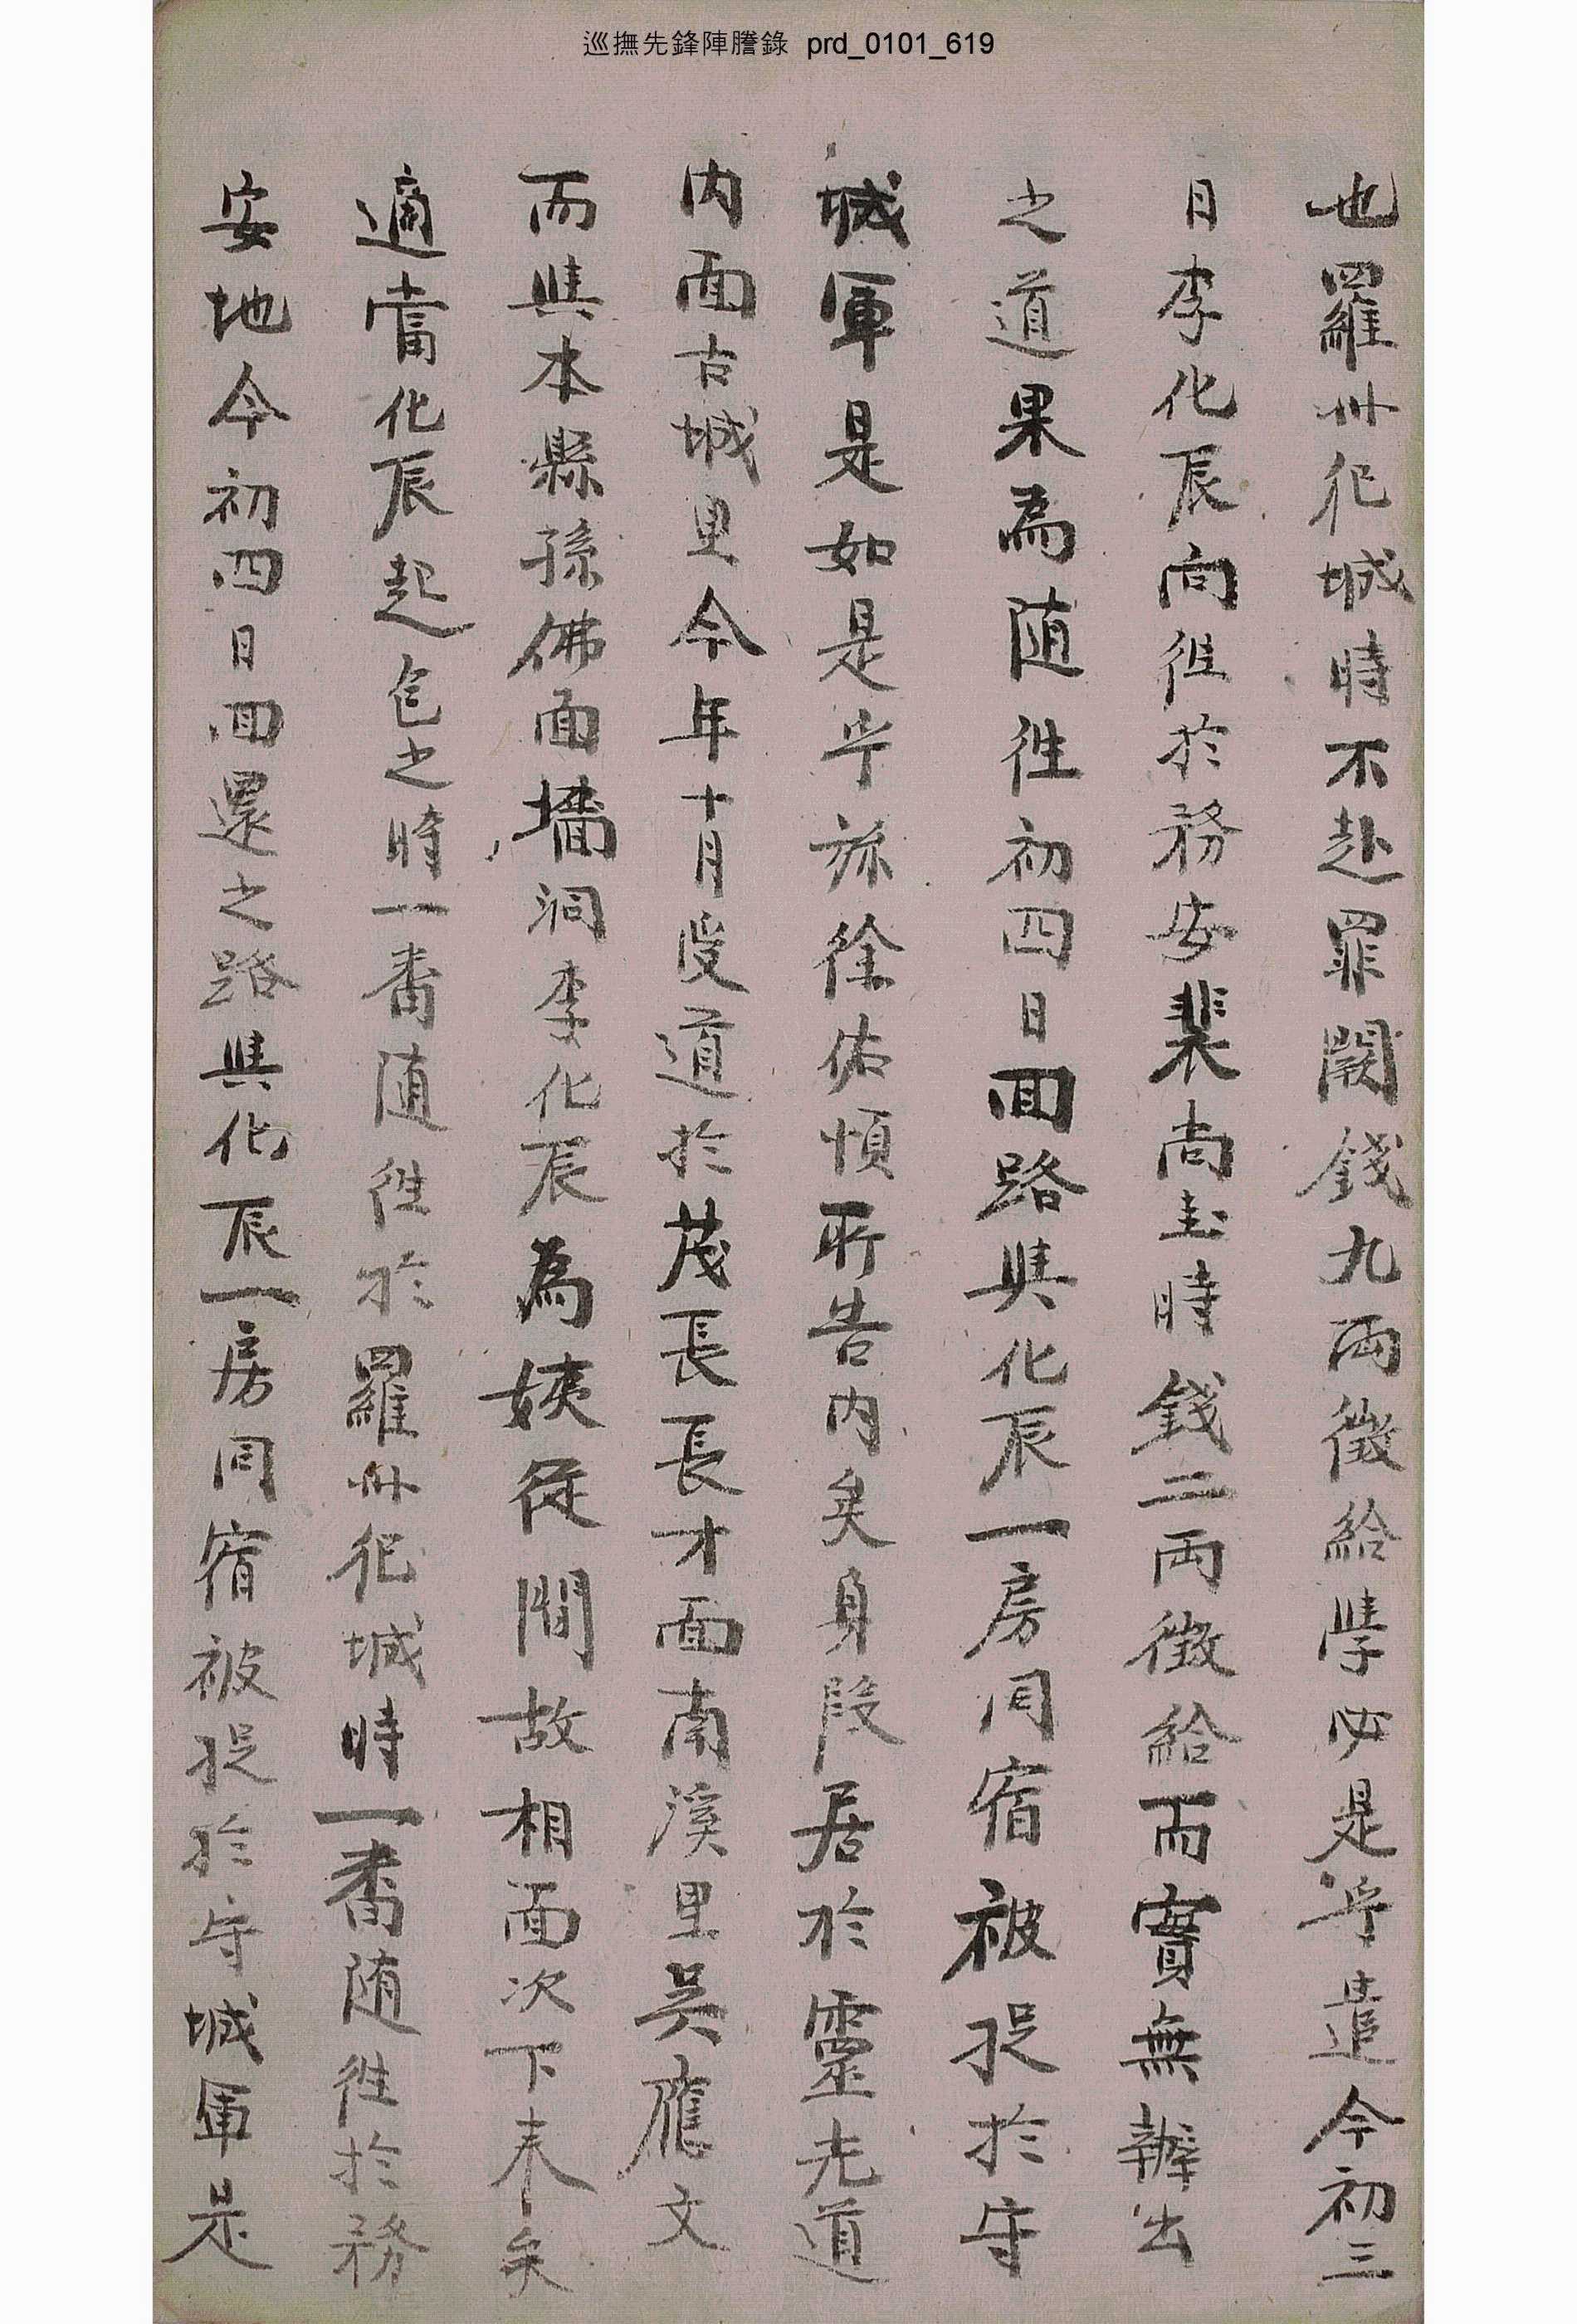 巡撫先鋒陣謄錄 prd_0101_619
也羅州犯城時不赴罪闕錢九兩徵給學必是乎遣今初三
日李化辰向徃於務安裴尙圭時錢二両徵給而實無辦出
之道果爲随徃初四日回路與化辰一房同宿被捉於守
城軍是如是乎旀徐佑愼所告內矣身段居於靈光道
內面古城里今年十月受道於茂長長才面南溪里吳應文
而與本縣孫佛面墻洞李化辰爲姨從間故相面次下来矣
適當化辰起包之時一番随徃於羅州犯城時一番随徃於務
安地今初四日回還之路與化辰一房同宿被捉於守城軍是